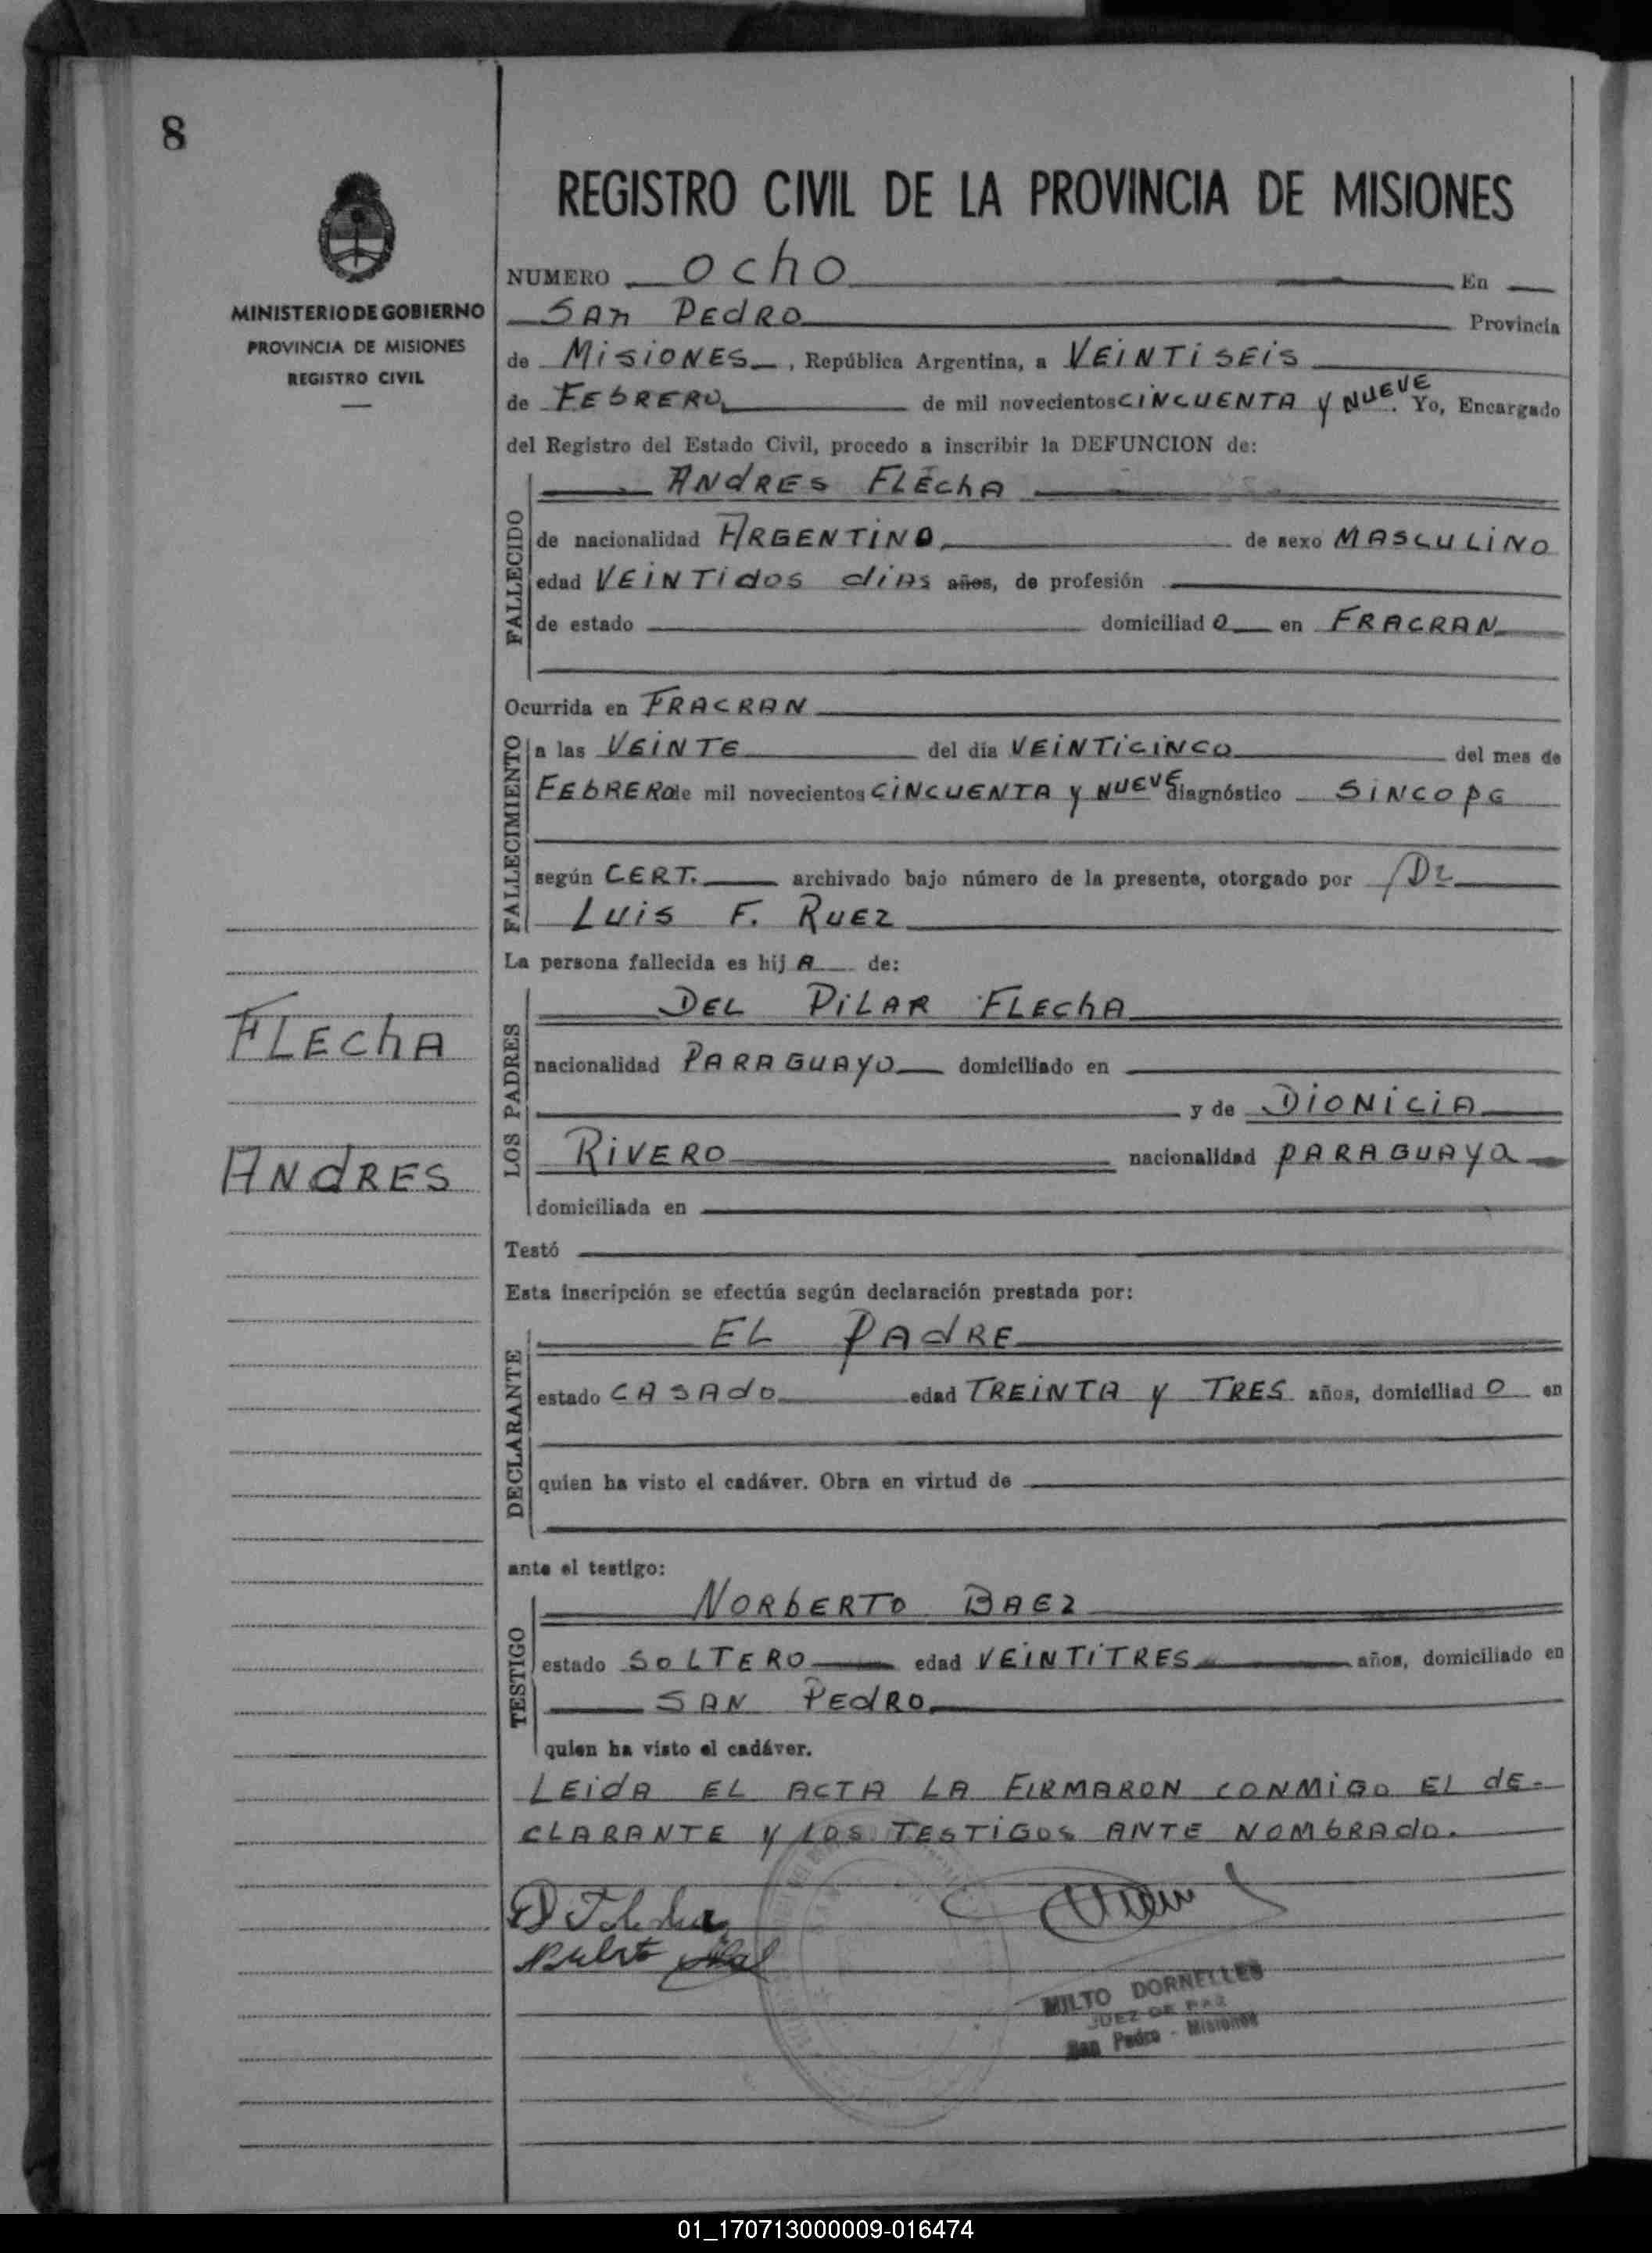 8
REGISTRO CIVIL DE LA PROVINCIA DE MISIONES
MINISTERIO DE GOBIERNO
PROVINCIA DE MISIONES
REGISTRO CIVIL
NUMERO ocho En
San Pedro Provincia
de Misiones, República Argentina, a VEINTISEIS
de FEBRERO de mil novecientos CINCUENTA y NUEVE. Yo, Encargado
del Registro del Estado Civil, procedo a inscribir la DEFUNCION de:
FALLECIDO
ANDRES FLECHA
de nacionalidad ARGENTINO de sexo MASCULINO
edad VEINTIDOS dias años, de profesión
de estado domiciliado en FRACRAN
Ocurrida en FRACRAN
FALLECIMIENTO
a las VEINTE del día VEINTICINCO del mes de
FEBRERO de mil novecientos CINCUENTA y NUEVE diagnóstico SINCOPE
según CERT. archivado bajo número de la presente, otorgado por Dr
LUIS F. RUEZ
La persona fallecida es hija de:
LOS PADRES
DEL PILAR FLECHA
FLECHA
nacionalidad PARAGUAYO domiciliado en
y de DIONICIA
ANDRES
RIVERO nacionalidad PARAGUAYA
domiciliada en
Testó
Esta inscripción se efectúa según declaración prestada por:
DECLARANTE
EL PADRE
estado CASADO edad TREINTA y TRES años, domiciliado en
quien ha visto el cadáver. Obra en virtud de
ante el testigo:
TESTIGO
NORBERTO BAEZ
estado SOLTERO edad VEINTITRES años, domiciliado en
SAN PEDRO
quien ha visto el cadáver.
LEIDA EL ACTA LA FIRMARON CONMIGO EL DE-
CLARANTE y LOS TESTIGOS ANTE NOMBRADO.
MILTO DORNELLES
JUEZ DE PAZ
San Pedro - Misiones
01_170713000009-016474